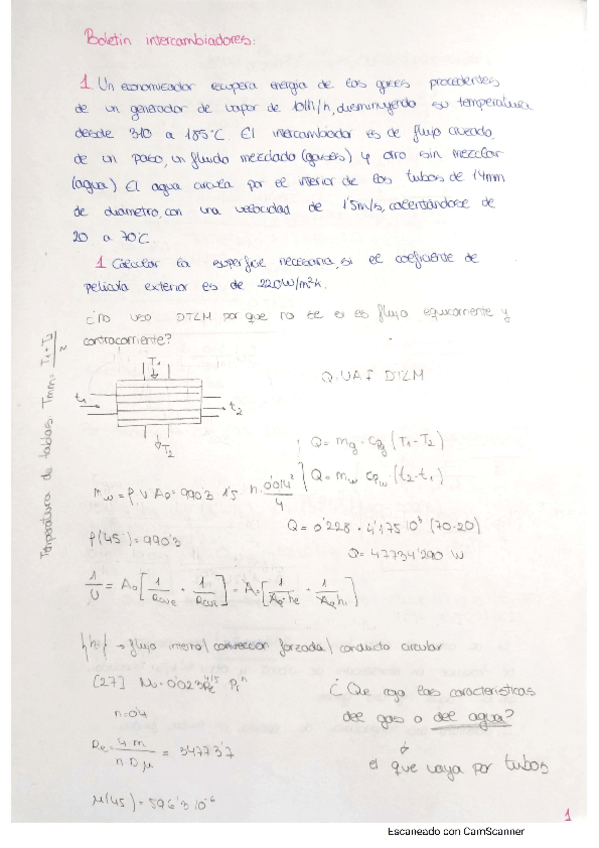 Boletín intercambiadores:
1 Un economizador recupera energía de los gases procedentes
de un generador de vapor de 10th/h, disminuyendo su temperatura
desde 310 a 185°C. El intercambiador es de flujo cruzado,
de un paso, un fluido mezclado (gases) y otro sin mezclar
(agua) El agua circula por el interior de los tubos de 14mm
de diametro, con una velocidad de 1'5m/s, calentándose de
20 a 70°C.
1 Calcular la superficie necesaria, si el coeficiente de
película exterior es de 220W/m²k.
¿No uso DTLM porque no se si es flujo equicorriente y
contracorriente?
Temperatura de tablas: Tmm= T1+T2 / 2
T1
t1
t2
T2
Q=UAF DTLM
Q= mg · Cpg (T1-T2)
Q= mw Cpw · (t2-t1)
mw = ρ·V·Ao= 990'3 1'5 π · 0'014² / 4
Q= 0'228 · 4'175·10³ (70-20)
ρ(45)= 990'3
Q= 47734'290 W
1/U = Ao [
flujo interno/ convección forzada/ conducto circular
[27] Nu=0'023Re^4/5 Pr^n
n=0'4
Re= 4 m / π D μ = 34773'7
μ(45)= 596'3·10^-6
¿Que cojo las características
del gas o del agua?
el que vaya por tubos
1
Escaneado con CamScanner